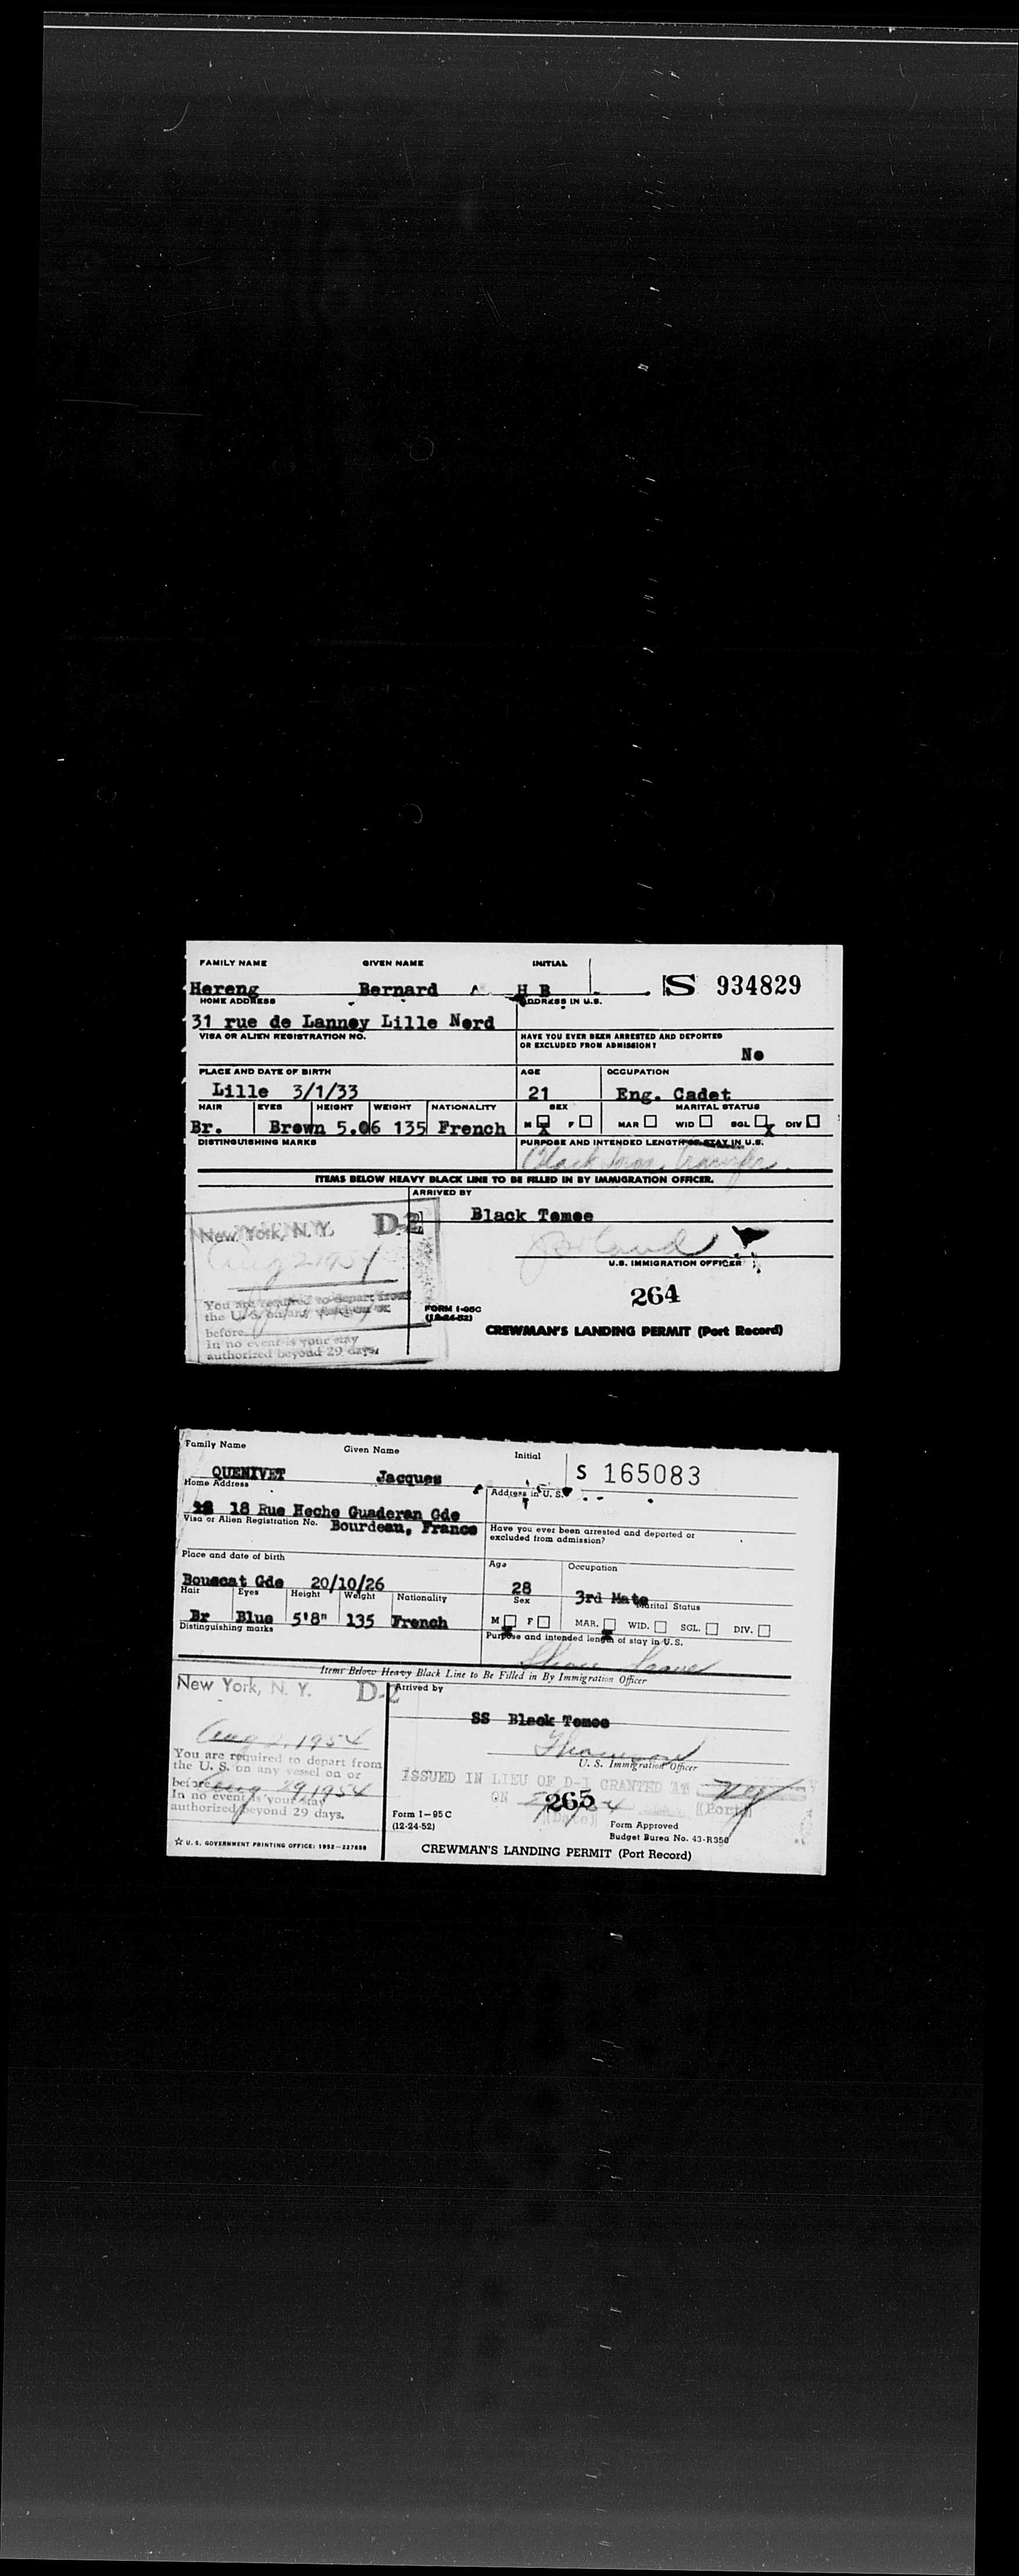 FAMILY NAME GIVEN NAME INITIAL
Hereng Bernard A H B S 934829
HOME ADDRESS ADDRESS IN U.S.
31 rue de Lannoy Lille Nord
VISA OR ALIEN REGISTRATION NO. HAVE YOU EVER BEEN ARRESTED AND DEPORTED
OR EXCLUDED FROM ADMISSION?
No
PLACE AND DATE OF BIRTH AGE OCCUPATION
Lille 3/1/33 21 Eng. Cadet
HAIR EYES HEIGHT WEIGHT NATIONALITY SEX MARITAL STATUS
Br. Brown 5.06 135 French M X F MAR WID SGL X DIV
DISTINGUISHING MARKS PURPOSE AND INTENDED LENGTH OF STAY IN U.S.
ITEMS BELOW HEAVY BLACK LINE TO BE FILLED IN BY IMMIGRATION OFFICER.
ARRIVED BY
New York, N. Y. D-2 Black Tomee
Aug 2 1954
U.S. IMMIGRATION OFFICER
264
You are required to depart from
the U. S. on any vessel on or
before
In no event is your stay
authorized beyond 29 days.
FORM I-95C
(12-24-52)
CREWMAN'S LANDING PERMIT (Port Record)
Family Name Given Name Initial
QUENIVET Jacques S 165083
Home Address Address in U. S.
18 Rue Hoche Guaderan Gde
Visa or Alien Registration No. Bourdeau, France Have you ever been arrested and deported or
excluded from admission?
Place and date of birth Age Occupation
Bouscat Gde 20/10/26 28 3rd Mate
Hair Eyes Height Weight Nationality Sex Marital Status
Br Blue 5'8" 135 French M F MAR. WID. SGL. DIV.
Distinguishing marks Purpose and intended length of stay in U.S.
Shore Leave
Items Below Heavy Black Line to Be Filled in By Immigration Officer
New York, N. Y. D-2 Arrived by
SS Black Tomee
Aug 1, 1954
U. S. Immigration Officer
You are required to depart from
the U. S. on any vessel on or
before Aug 29 1954
In no event is your stay
authorized beyond 29 days.
ISSUED IN LIEU OF D-1 GRANTED AT NY
ON (Date) (Port)
265
Form I-95C
(12-24-52)
Form Approved
Budget Burea No. 43-R350
☆ U. S. GOVERNMENT PRINTING OFFICE: 1952-227656
CREWMAN'S LANDING PERMIT (Port Record)